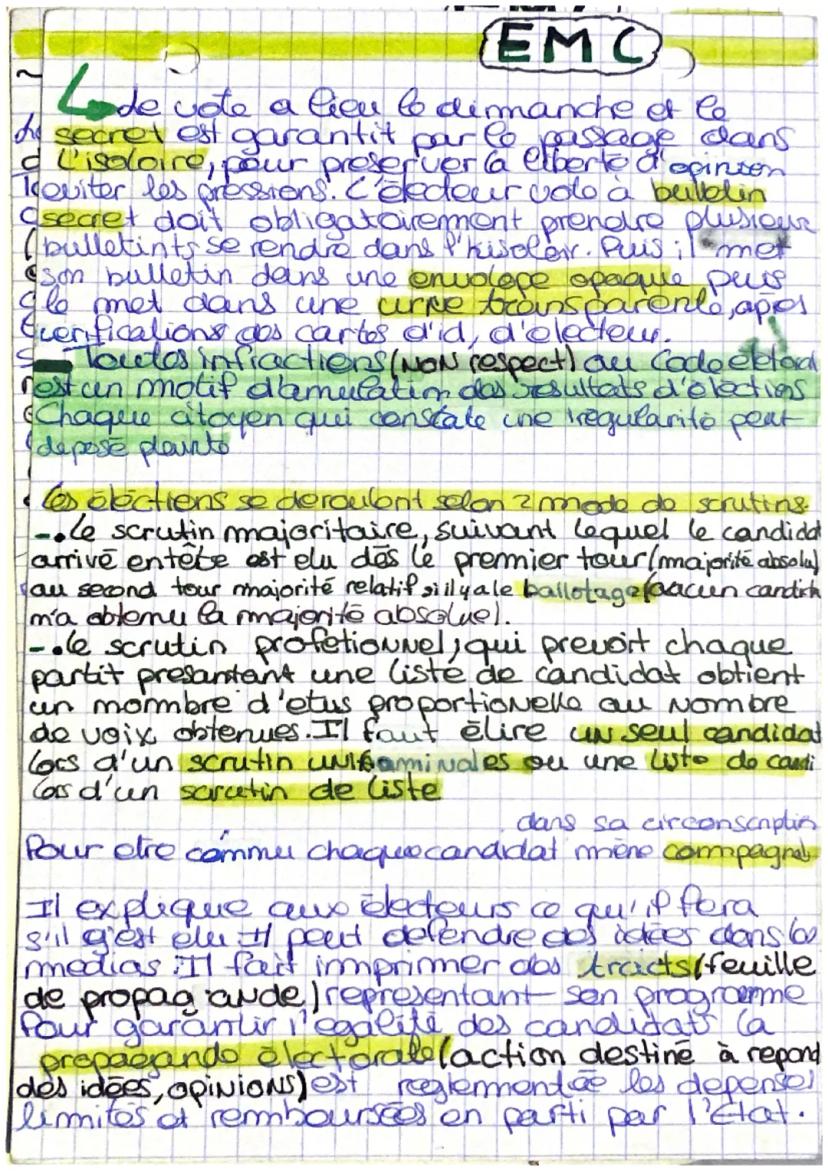 EMC
Le vote a lieu le dimmanche et le
secret est garantit par le passage dans
l'isoloire, pour preserver la liberte d'opinion
eviter les pressions. L'électeur vote à bulletin
secret doit obligatoirement prendre plusieur
bulletints se rendre dans l'hisoloir. Puis il met
son bulletin dans une envolope opaque puis
le met dans une urne transparente, apres
verifications des cartes d'id, d'electeur.
Toutes infractions (NON respect) au Code
est un motif d'annulation des resultats d'élections
Chaque citoyen qui constate une irregularité peut
deposé plainte
Les éléctions se deroulent selon 2 mode de scrutins.
-. Le scrutin majoritaire, suivant lequel le candidat
arrivé entête est elu dès le premier tour (majorité absolu)
au second tour majorité relatif si il y a le ballotage (aucun
n'a obtenu la majorité absolue).
-. le scrutin profetionnel, qui prevoit chaque
partit presantant une liste de candidat obtient
un nombre d'elus proportionelle au nombre
de voix obtenues. Il faut élire un seul candidat
lors d'un scrutin ou une liste de
lors d'un scrutin de liste
dans sa circonscription
Pour etre connu chaque candidat mène campagne
Il explique aux électeurs ce qu'il fera
s'il est élu Il peut defendre des idées dans les
medias. Il fait imprimer des tracts (feuille
de propagande) representant son programme
Pour garantir l'egalité des candidats la
propagande électorale (action destiné à repond
des idées, opinions) est reglementée les depenses
limités et remboursées en parti par l'Etat.